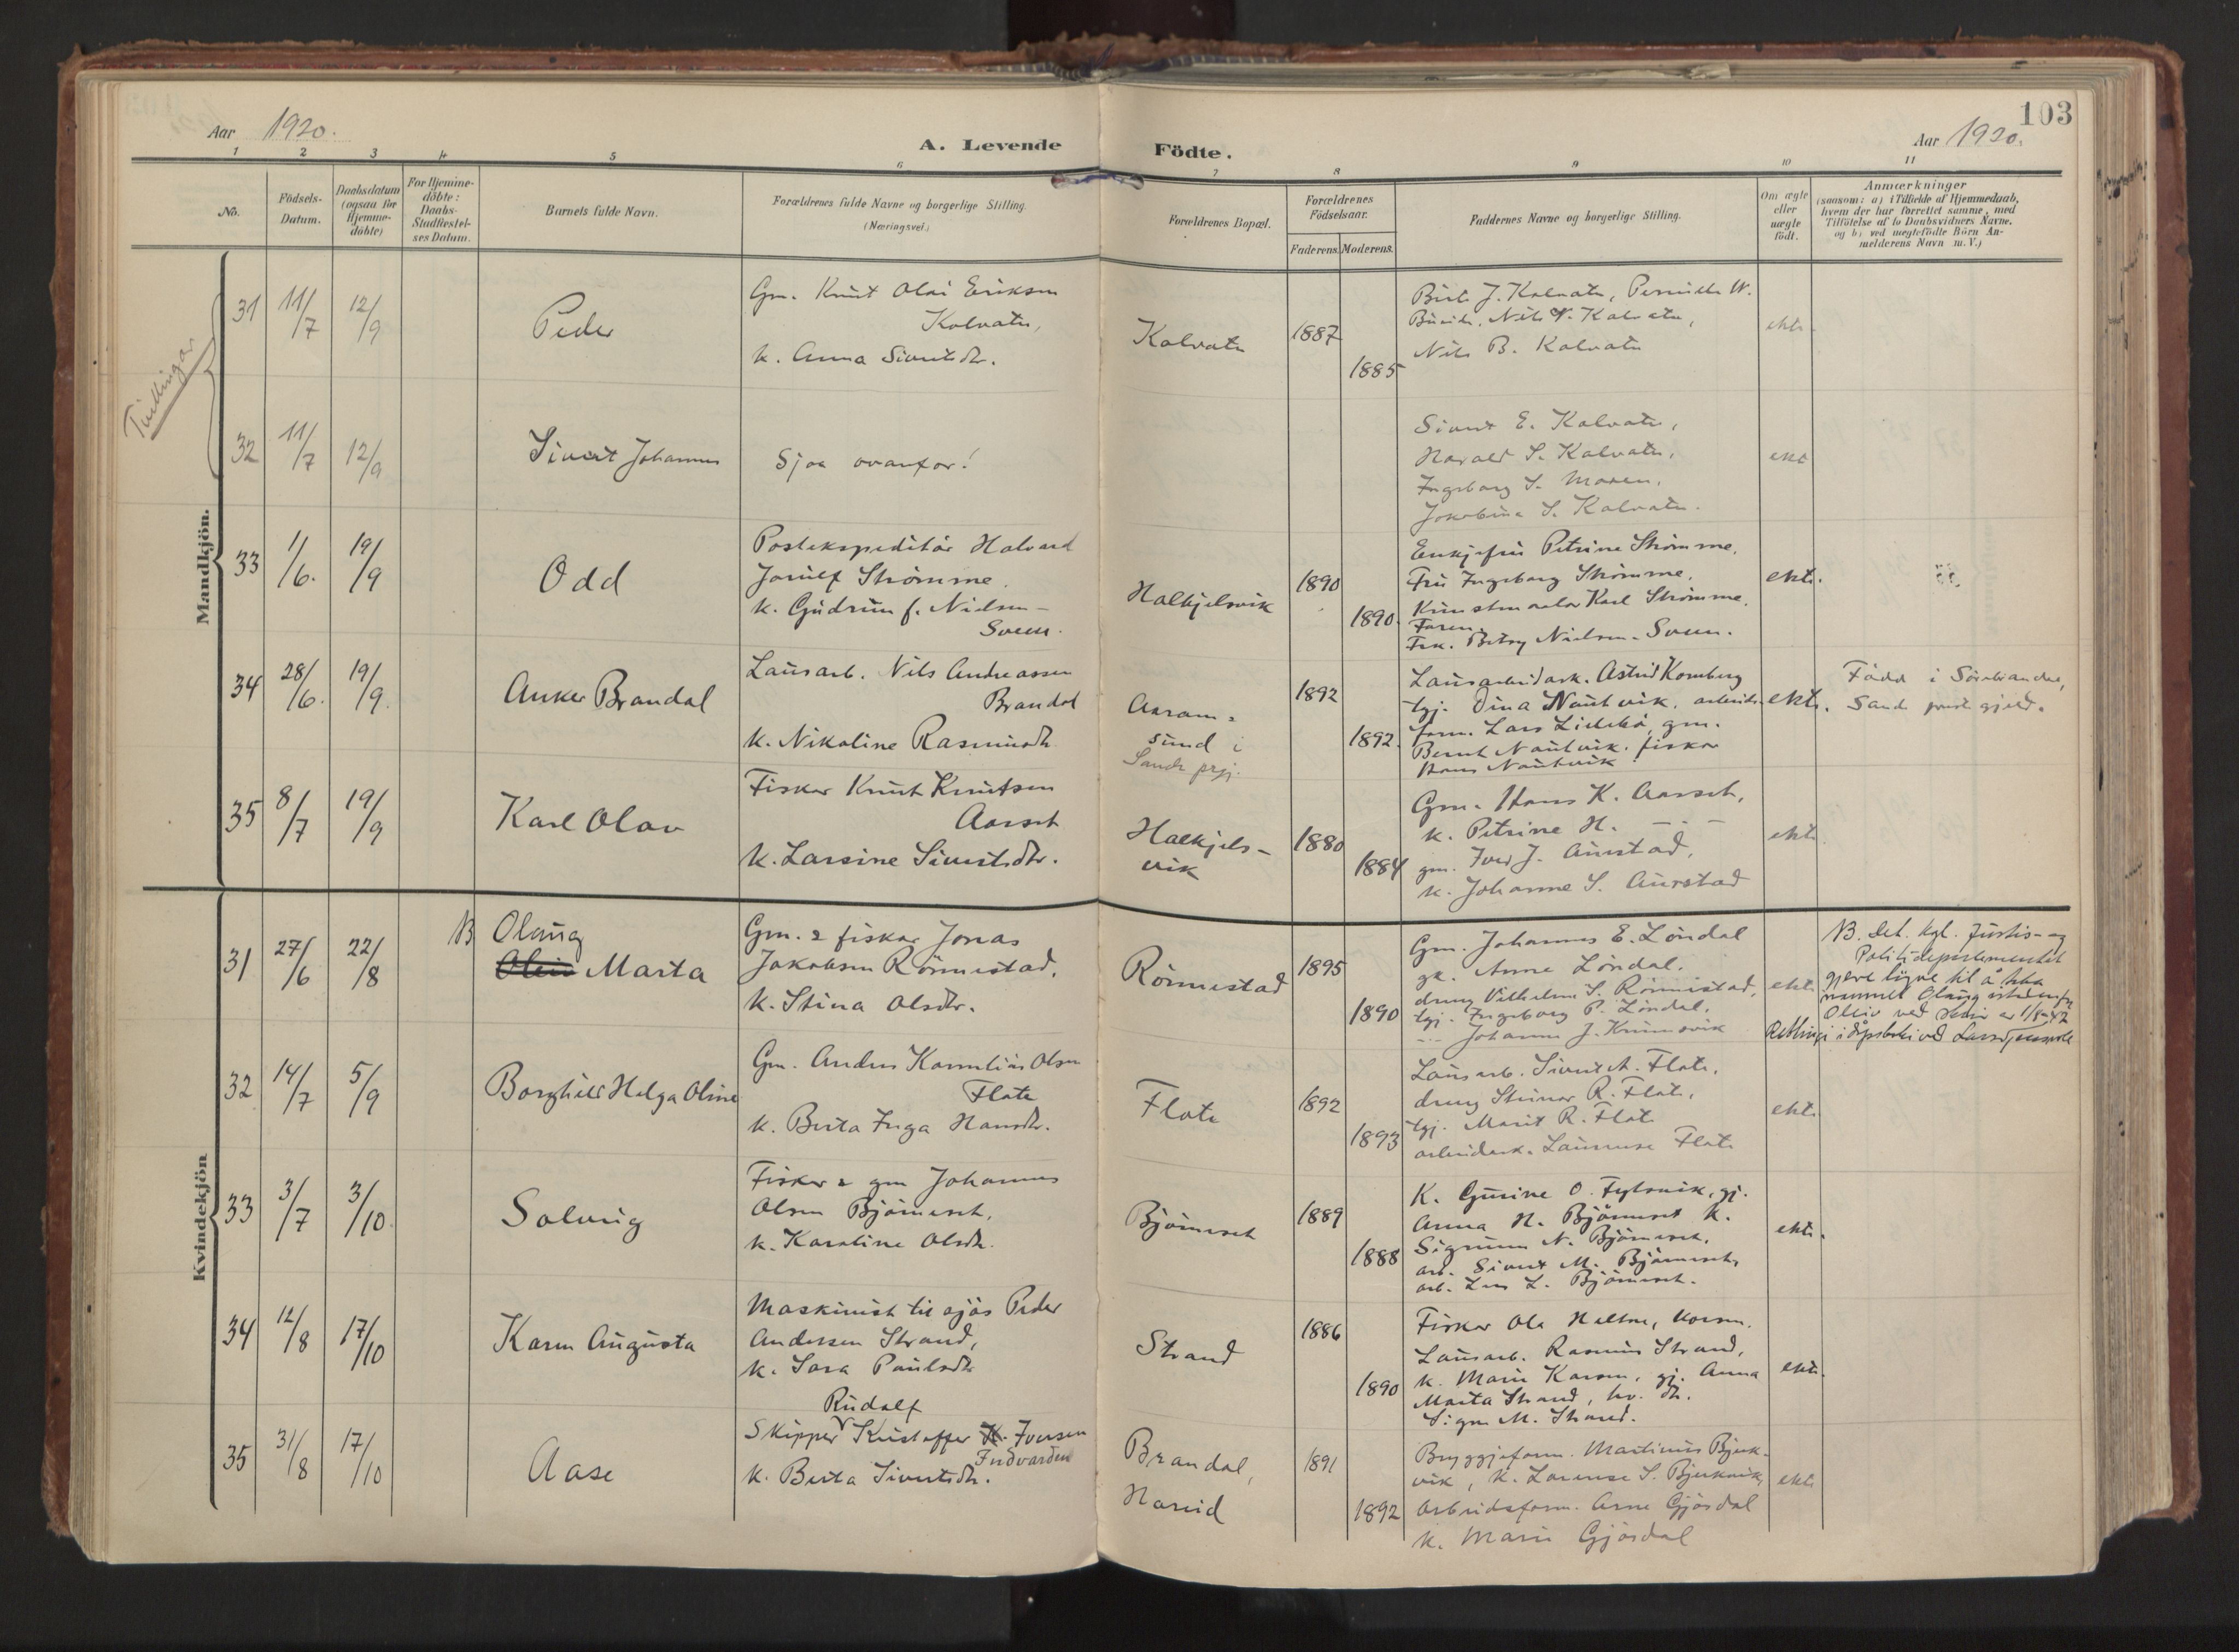 103
Aar 1920.
A. Levende
Födte.
Aar 1920.
1 2 3 4 5 6 7 8 9 10 11
No.
Födsels-
Datum.
Daabsdatum
(ogsaa for
Hjemme-
döbte)
For Hjemme-
döbte:
Daabs-
Stadfestel-
ses Datum.
Barnets fulde Navn.
Forældrenes fulde Navne og borgerlige Stilling
(Næringsvei.)
Forældrenes Bopæl.
Forældrenes
Födselsaar.
Faderens. Moderens.
Faddernes Navne og borgerlige Stilling.
Om ægte
eller
uægte
födt.
Anmærkninger
(saasom: a) i Tilfælde af Hjemmedaab,
hvem der har forrettet samme, med
Tilföielse af to Daabsvidners Navne.
og b) ved uægtefödte Börn An-
melderens Navn m.V.)
Mandkjön.
Tvillingar
31 11/7 12/9
Peder
Gm. Knut Olai Eriksen
Kolvatn,
k. Anna Sivertsdtr.
Kalvatn
1887
1885
J. Kalvatn, Pernille W.
Nils V. Kalvatn,
Nils B. Kalvatn
ekte
32 11/7 12/9
Sivert Johannes
Sjaa ovanfor!
Sivert E. Kalvatn,
Harald S. Kalvatn,
Ingeborg S. Moren,
Jakobina S. Kalvatn.
ekte
33 1/6. 19/9
Odd
Postekspeditör Halvard
Jörulf Strömme.
k. Gudrun f. Nielsen-
Soeen.
Halkjelsvik
1890
1890.
Enkjefru Petrine Strömme.
Fru Ingeborg Strömme.
Kunstmaalar Karl Strömme.
Faren.
Frk. Betsy Nielsen-Soeen.
ekte.
34 28/6. 19/9.
Anker Brandal
Lausarb. Nils Andreassen
Brandal
k. Nikoline Rasmusdtr.
Aaram-
sund i
Sande prgj.
1892
1892.
Lausarbeidark. Astrid Kornberg
tgj. Dina Nautvik, arbeids-
form. Lars Lidebö, gm.
Bernt Nautvik, fiskar
Hans Nautvik
ekte.
Född i Sörebrandal,
Sande prestegjeld.
35 8/7 19/9
Karl Olav
Fisker Knut Knutsen
Aarset
k. Larsine Sivertsdtr.
Halkjels-
vik
1880
1884
Gm. Hans K. Aarset,
k. Petrine H. — . —
gm. Iver J. Aurstad,
k. Johanne S. Aurstad
ekte
Kvindekjön
31 27/6 22/8
NB Olaug
Oleiv Marta
Gm. & fiskar Jonas
Jakobsen Rönnestad.
k. Stina Olsdtr.
Rönnestad
1895
1890
Gm. Johannes E. Löndal
gk. Anne Löndal.
dreng Vilhelm S. Rönnestad,
tgj. Ingeborg P. Löndal,
Johanne J. Krumsvik
ekte
NB. Det. kgl. Justis- og
Politidepartementet
gjeve löyve til å taka
namnet Olaug istadenfor
Oleiv ved skriv av 1/8-42
32 14/7 5/9
Borghild Helga Oline
Gm. Anders Kornelius Olsen
Flote
k. Berta Inga Hansdtr.
Flote
1892
1893
Lausarb. Sivert A. Flote,
dreng Steinar R. Flote,
tgj. Marit R. Flote
arbeidark. Laurense Flote
ekte
33 3/7 3/10.
Solveig
Fisker & gm Johannes
Olsen Björneset,
k. Karoline Olsdtr.
Björneset
1889
1888
K. Gurine O. Fylsvik, gj.
Anna H. Björneset k.
Sigrunn N. Björneset,
arb. Sivert M. Björneset,
arb. Lars L. Björneset.
ekte.
34 12/8 17/10
Karen Augusta
Maskinist til sjös Peder
Andersen Strand,
k. Sara Paulsdtr
Strand
1886
1890
Fiskar Ole Heltne,
Lausarb. Rasmus Strand,
k. Marie Karsen, gj. Anna
Marta Strand,
Signe M. Strand.
ekte.
35 31/8 17/10
Aase
Rudolf
Skipper Kristoffer K. Iversen
k. Berta Sivertsdtr.
Brandal,
Hareid
1891
1892
Bryggjeform. Martinus Bjerk-
vik, k. Laurense S. Bjerkvik,
Arbeidsform. Arne Gjösdal
k. Marie Gjösdal
ekte